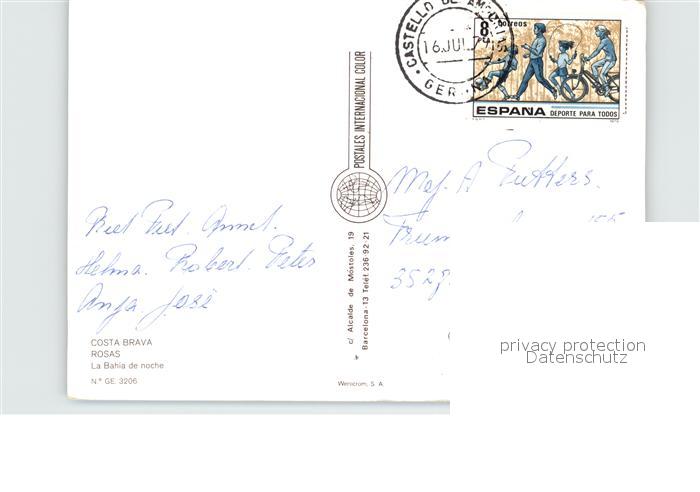 CASTELLO DE AMPURIAS
16 JUL. 79
GERONA
8 correos
ESPAÑA DEPORTE PARA TODOS
POSTALES INTERNACIONAL COLOR
c/ Alcalde de Móstoles, 19
Barcelona-13 Teléf. 236-92-21
Mej. A Rutters.
155
352
Piet. Annet.
Helma. Robert. Peter
Anja. José
COSTA BRAVA
ROSAS
La Bahia de noche
N.º GE. 3206
Werocrom, S. A.
privacy protection
Datenschutz